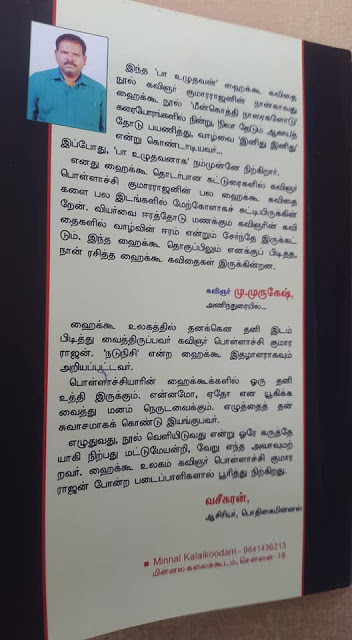 இந்த 'பா உழுதவன்' ஹைக்கூ கவிதை
நூல் கவிஞர் குமாரராஜனின் நான்காவது
ஹைக்கூ நூல் 'மீன்கொத்தி நாரைகளோடு'
கரையோரங்களில் நின்று, 'நிலா தேடும் ஆகாயத்
தோடு பயணித்து, வாழ்வை 'இனிது இனிது'
என்று கொண்டாடியவர்...
இப்போது, 'பா உழுதவனாக' நம்முன்னே நிற்கிறார்.
எனது ஹைக்கூ தொடர்பான கட்டுரைகளில் கவிஞர்
பொள்ளாச்சி குமாரராஜனின் பல ஹைக்கூ கவிதை
களை பல இடங்களில் மேற்கோளாகச் சுட்டியிருக்கின்
றேன். வியர்வை ஈரத்தோடு மணக்கும் கவிஞரின் கவி
தைகளில் வாழ்வின் ஈரம் என்றும் சேர்ந்தே இருக்கட்
டும். இந்த ஹைக்கூ தொகுப்பிலும் எனக்குப் பிடித்த,
நான் ரசித்த ஹைக்கூ கவிதைகள் இருக்கின்றன.
கவிஞர் மு.முருகேஷ்,
அணிந்துரையில்...
ஹைக்கூ உலகத்தில் தனக்கென தனி இடம்
பிடித்து வைத்திருப்பவர் கவிஞர் பொள்ளாச்சி குமார
ராஜன். 'நடுநிசி' என்ற ஹைக்கூ இதழாளராகவும்
அறியப்பட்டவர்.
பொள்ளாச்சியாரின் ஹைக்கூக்களில் ஒரு தனி
உத்தி இருக்கும். என்னமோ, ஏதோ என யூகிக்க
வைத்து மனம் நெருடவைக்கும். எழுத்தைத் தன்
சுவாசமாகக் கொண்டு இயங்குபவர்.
எழுதுவது, நூல் வெளியிடுவது என்று ஒரே கருத்தே
யாகி நிற்பது மட்டுமேயன்றி, வேறு எந்த அவாவுமற்
றவர். ஹைக்கூ உலகம் கவிஞர் பொள்ளாச்சி குமார
ராஜன் போன்ற படைப்பாளிகளால் பூரித்து நிற்கிறது.
வசீகரன்,
ஆசிரியர், பொதிகைமின்னல்
Minnal Kalaikoodam - 9841436213
மின்னல் கலைக்கூடம், சென்னை -18